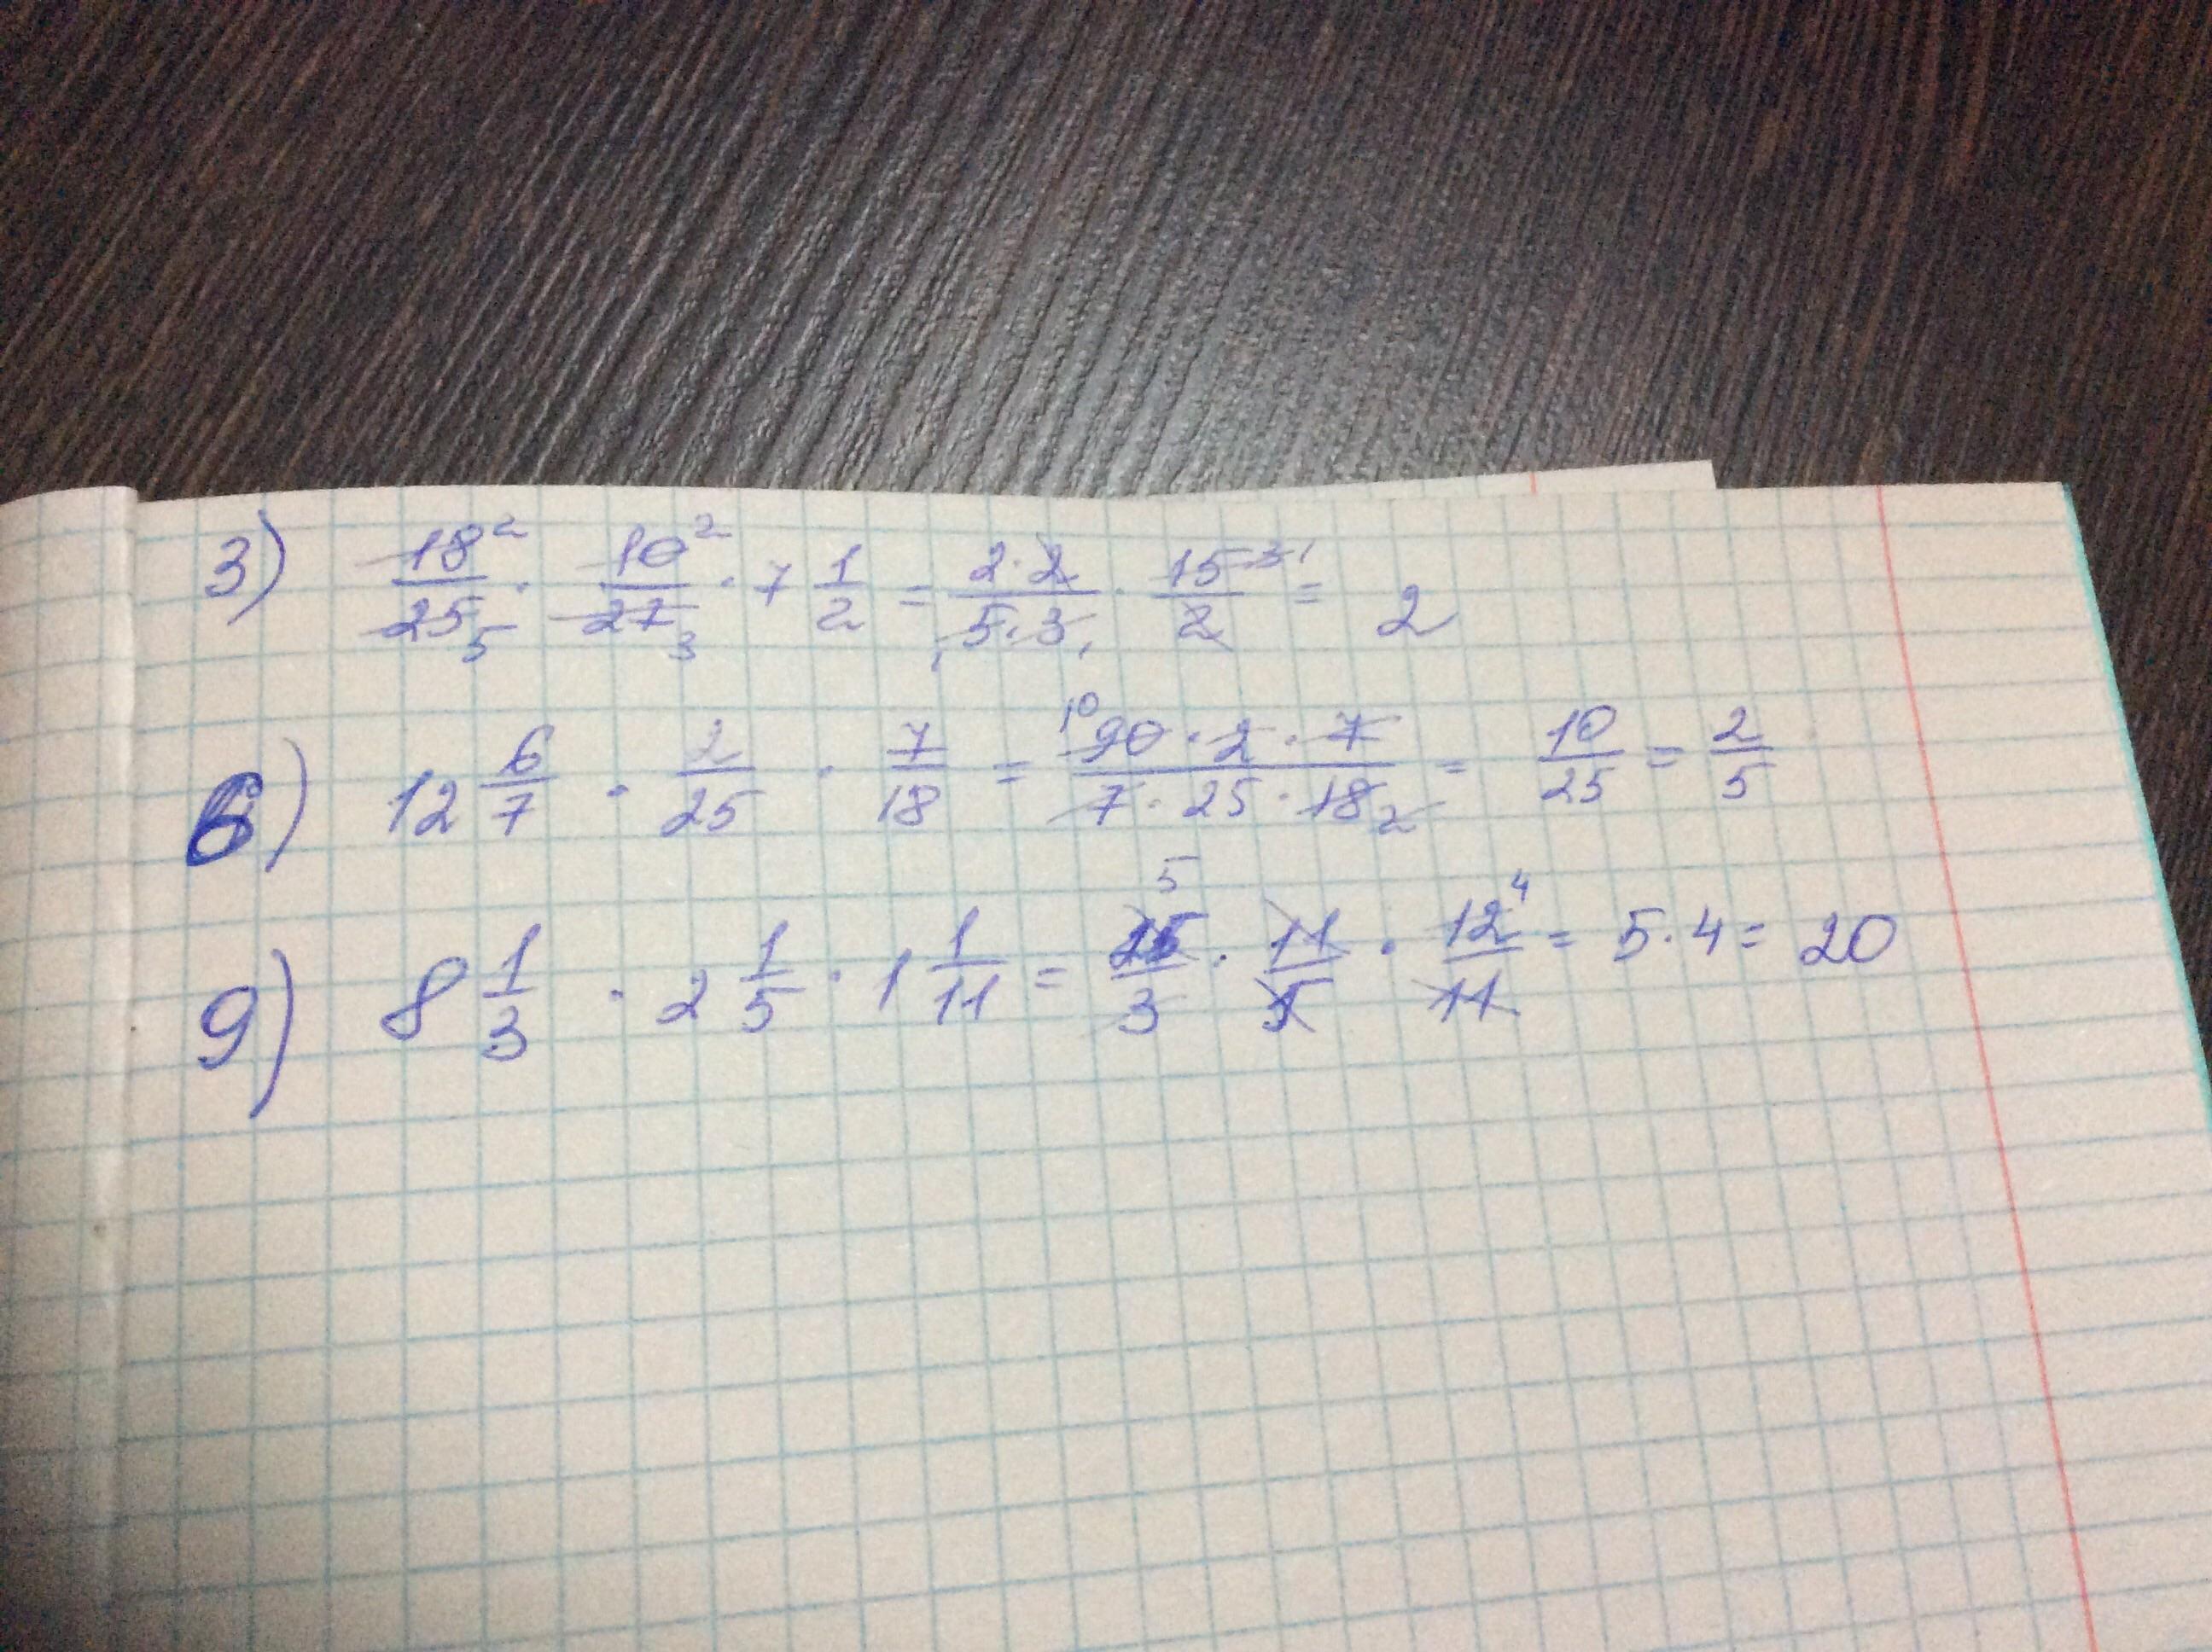 3) 18²/25₅ · 10²/27₃ · 7 1/2 = 2·2/₁5·3₁ · 15 3 1/2 = 2
6) 12 6/7 · 2/25 · 7/18 = ¹⁰90·2·7/7·25·18₂ = 10/25 = 2/5
9) 8 1/3 · 2 1/5 · 1 1/11 = ⁵25/3 · 11/5 · 12⁴/11 = 5·4 = 20